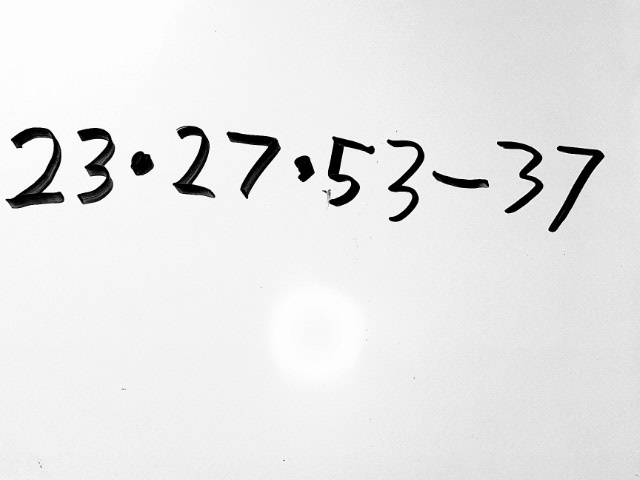 23·27·53-37